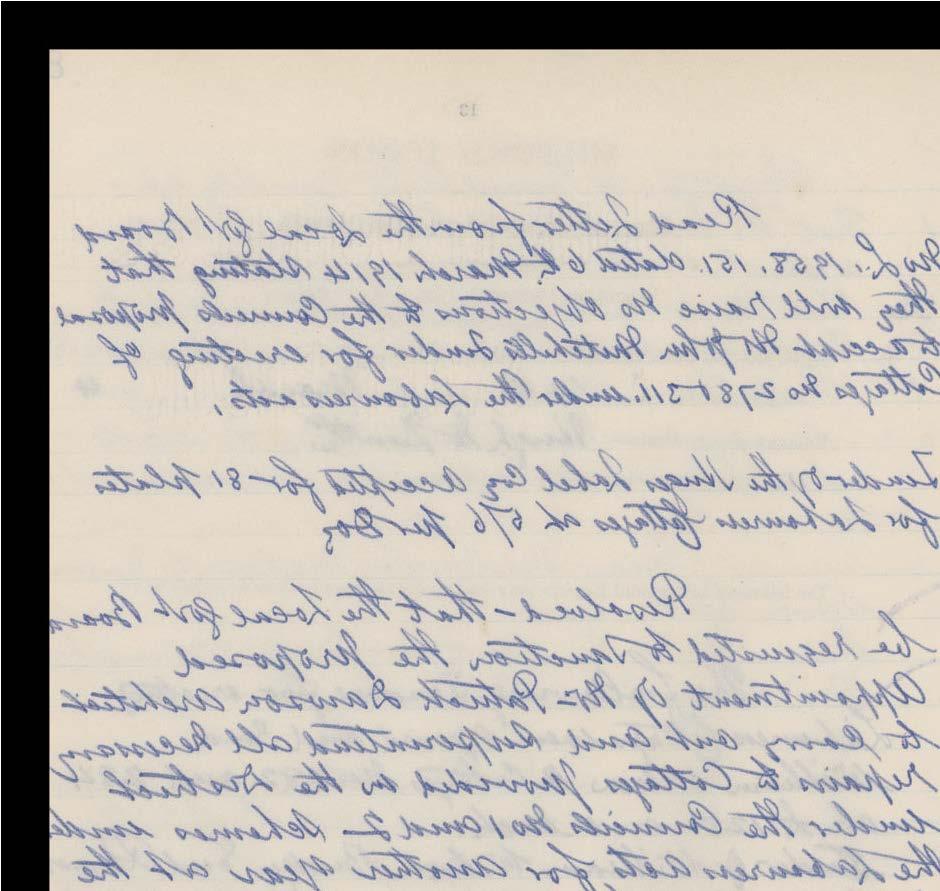 13
Read Letter from the Local Govt Board
No L. 1958. 151. dated 6th March 1914 stating that
they will raise no objections to the Councils proposal
to accept Mr John Mitchells tender for erecting of
Cottages No 278 & 311. under the Labourers acts.
Tender of the Label Coy accepted for 81 plates
for Labourers Cottages at 5/6 per Doz
Resolved - that the Local Govt Board
be requested to sanction the proposed
appointment of Mr Patrick Dawson architect
to carry out and all necessary
repairs to Cottages provided in the District
under the Councils No 1 and 2 - schemes under
the Labourers acts, for another year at the